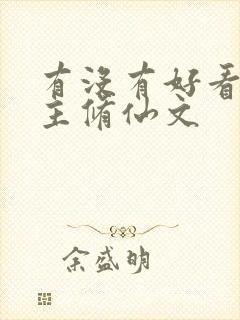 有没有好看
主脩仙文
余盛明